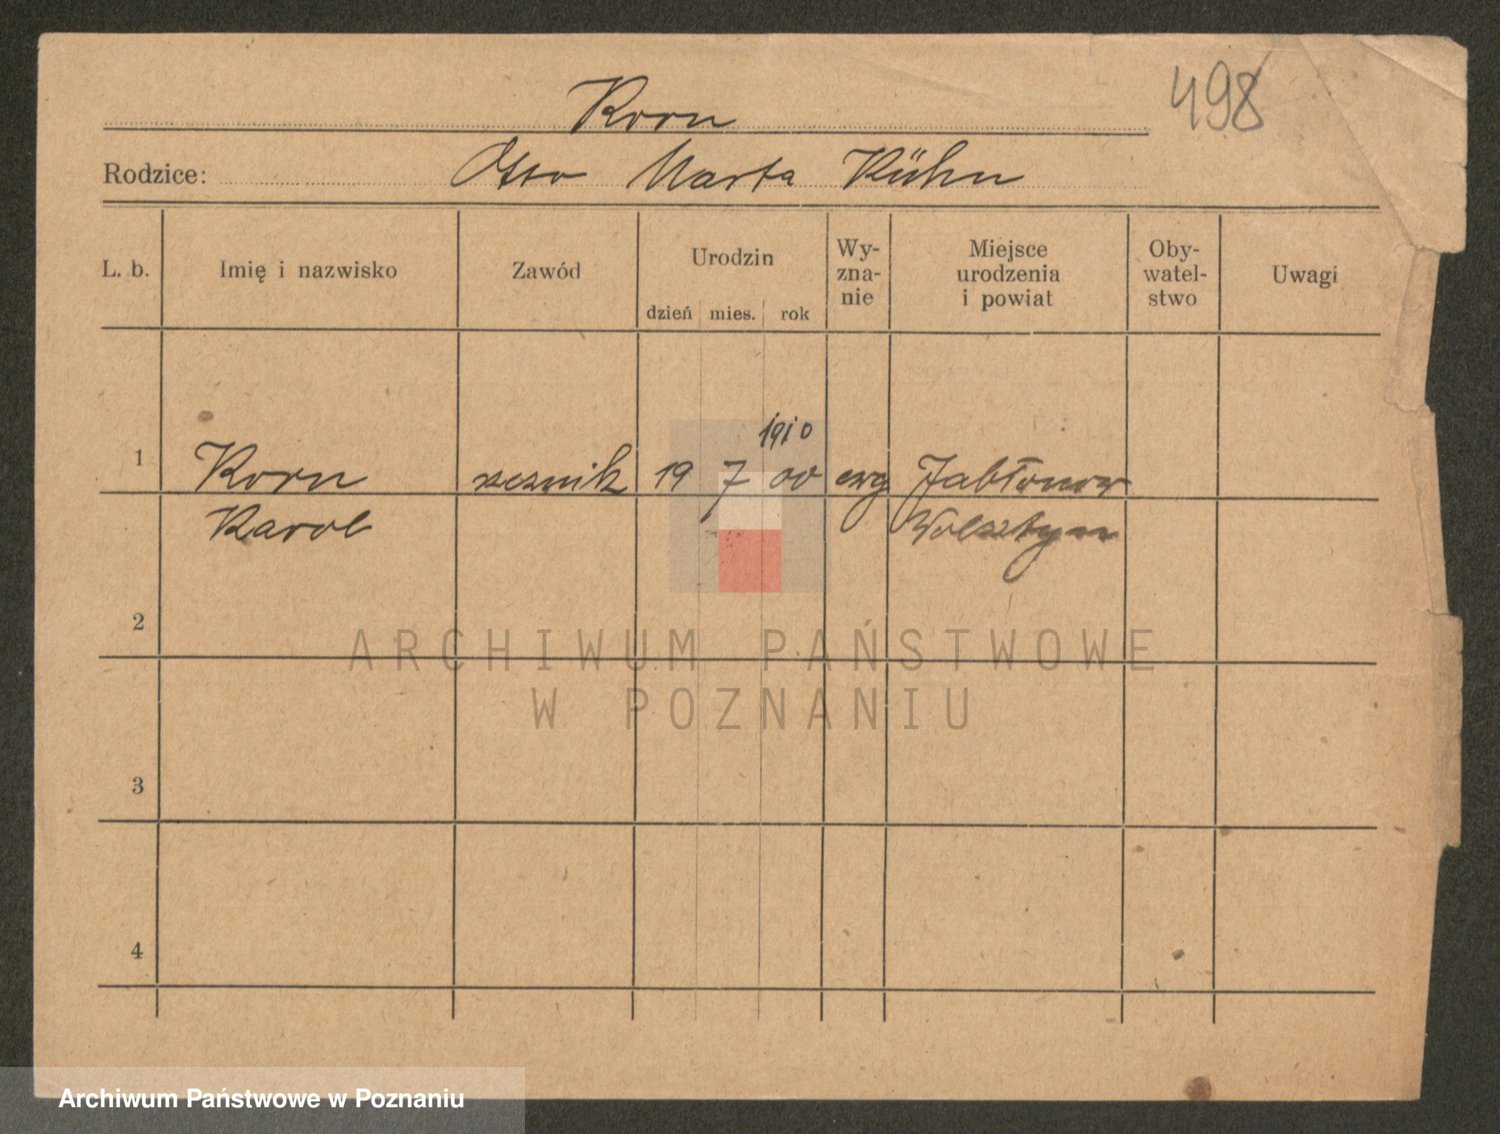 498
Korn
Rodzice: Otto Marta Kühn
L. b. Imię i nazwisko Zawód Urodzin dzień mies. rok Wy-zna-nie Miejsce urodzenia i powiat Oby-watel-stwo Uwagi
1910
1 Korn rzeźnik 19 7 00 ewg Jabłonow
Karol Wolsztyn
2
3
4
ARCHIWUM PAŃSTWOWE
W POZNANIU
Archiwum Państwowe w Poznaniu